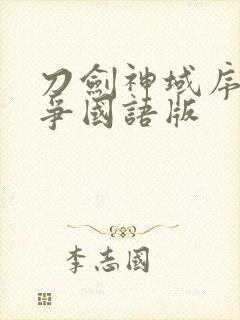 刀劍神域序
爭國語版
李志國